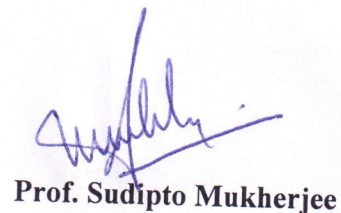 Prof. Sudipto Mukherjee